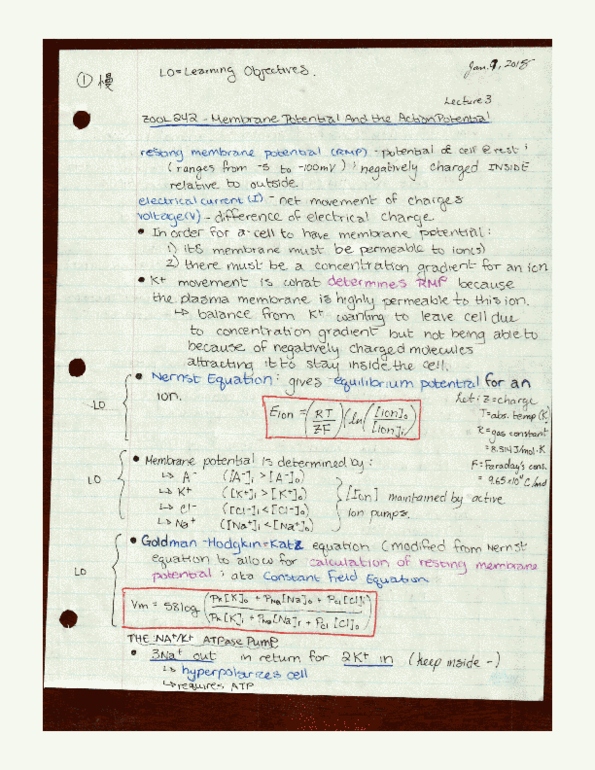 ① 慢
LO = Learning Objectives.
Jan. 9, 2015
Lecture 3
ZOOL 242 - Membrane Potential And the Action Potential
resting membrane potential (RMP) - potential of cell @ rest ;
(ranges from -5 to -100mV) ; negatively charged INSIDE
relative to outside.
electrical current (I) - net movement of charges
voltage (V) - difference of electrical charge.
• In order for a cell to have membrane potential:
1) its membrane must be permeable to ion(s)
2) there must be a concentration gradient for an ion
• K+ movement is what determines RMP because
the plasma membrane is highly permeable to this ion.
↳ balance from K+ wanting to leave cell due
to concentration gradient but not being able to
because of negatively charged molecules
attracting it to stay inside the cell.
LO
• Nernst Equation: gives equilibrium potential for an
ion.
Eion = (RT/ZF) (ln([ion]o/[ion]i))
Let: Z = charge
T = abs. temp (K)
R = gas constant
= 8.314 J/mol·K
F = Faraday's const.
= 9.65×10⁴ C/mol
LO
• Membrane potential is determined by:
↳ A- ([A-]i > [A-]o)
↳ K+ ([K+]i > [K+]o)
↳ Cl- ([Cl-]i < [Cl-]o)
↳ Na+ ([Na+]i < [Na+]o)
[Ion] maintained by active
ion pumps.
LO
• Goldman-Hodgkin-Katz equation (modified from Nernst
equation to allow for calculation of resting membrane
potential ; aka Constant Field Equation
Vm = 58log (PK[K]o + PNa[Na]o + PCl[Cl]i / PK[K]i + PNa[Na]i + PCl[Cl]o)
THE NA+/K+ ATPase Pump
• 3Na+ out in return for 2K+ in (keep inside -)
↳ hyperpolarizes cell
↳ requires ATP